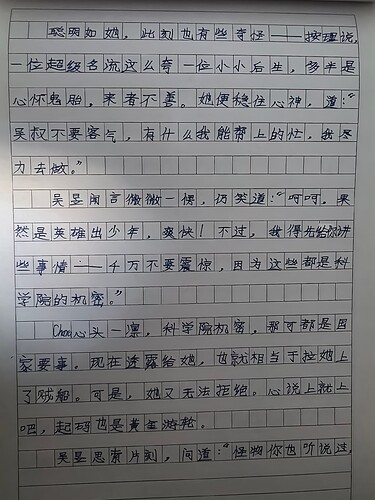 聪明如她，此刻也有些奇怪——按理说，
一位超级名流这么夸一位小小后生，多半是
心怀鬼胎，来者不善。她便稳住心神，道：“
吴叔不要客气，有什么我能帮上的忙，我尽
力去做。”
吴昱闻言微微一愣，仍笑道：“呵呵。果
然是英雄出少年，爽快！不过，我得先给你讲
些事情——千万不要震惊，因为这些都是科
学院的机密。”
心头一凛，科学院机密，那可都是国
家要事。现在透露给她，也就相当于拉她上
了贼船。可是，她又无法拒绝。心说上就上
吧，起码也是黄金游轮。
吴昱思索片刻，问道：“怪物你也听说过，